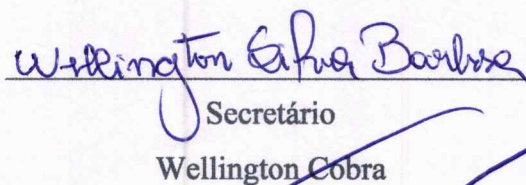 Wellington Silva Barbosa
Secretário
Wellington Cobra